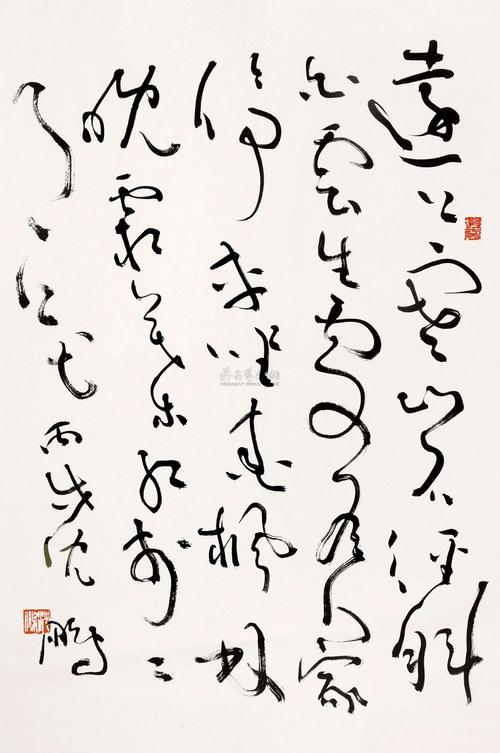 遠上寒山石徑斜
白雲生處有人家
停車坐愛楓林
晚霜葉紅於二
月花 丙戌沈鵬